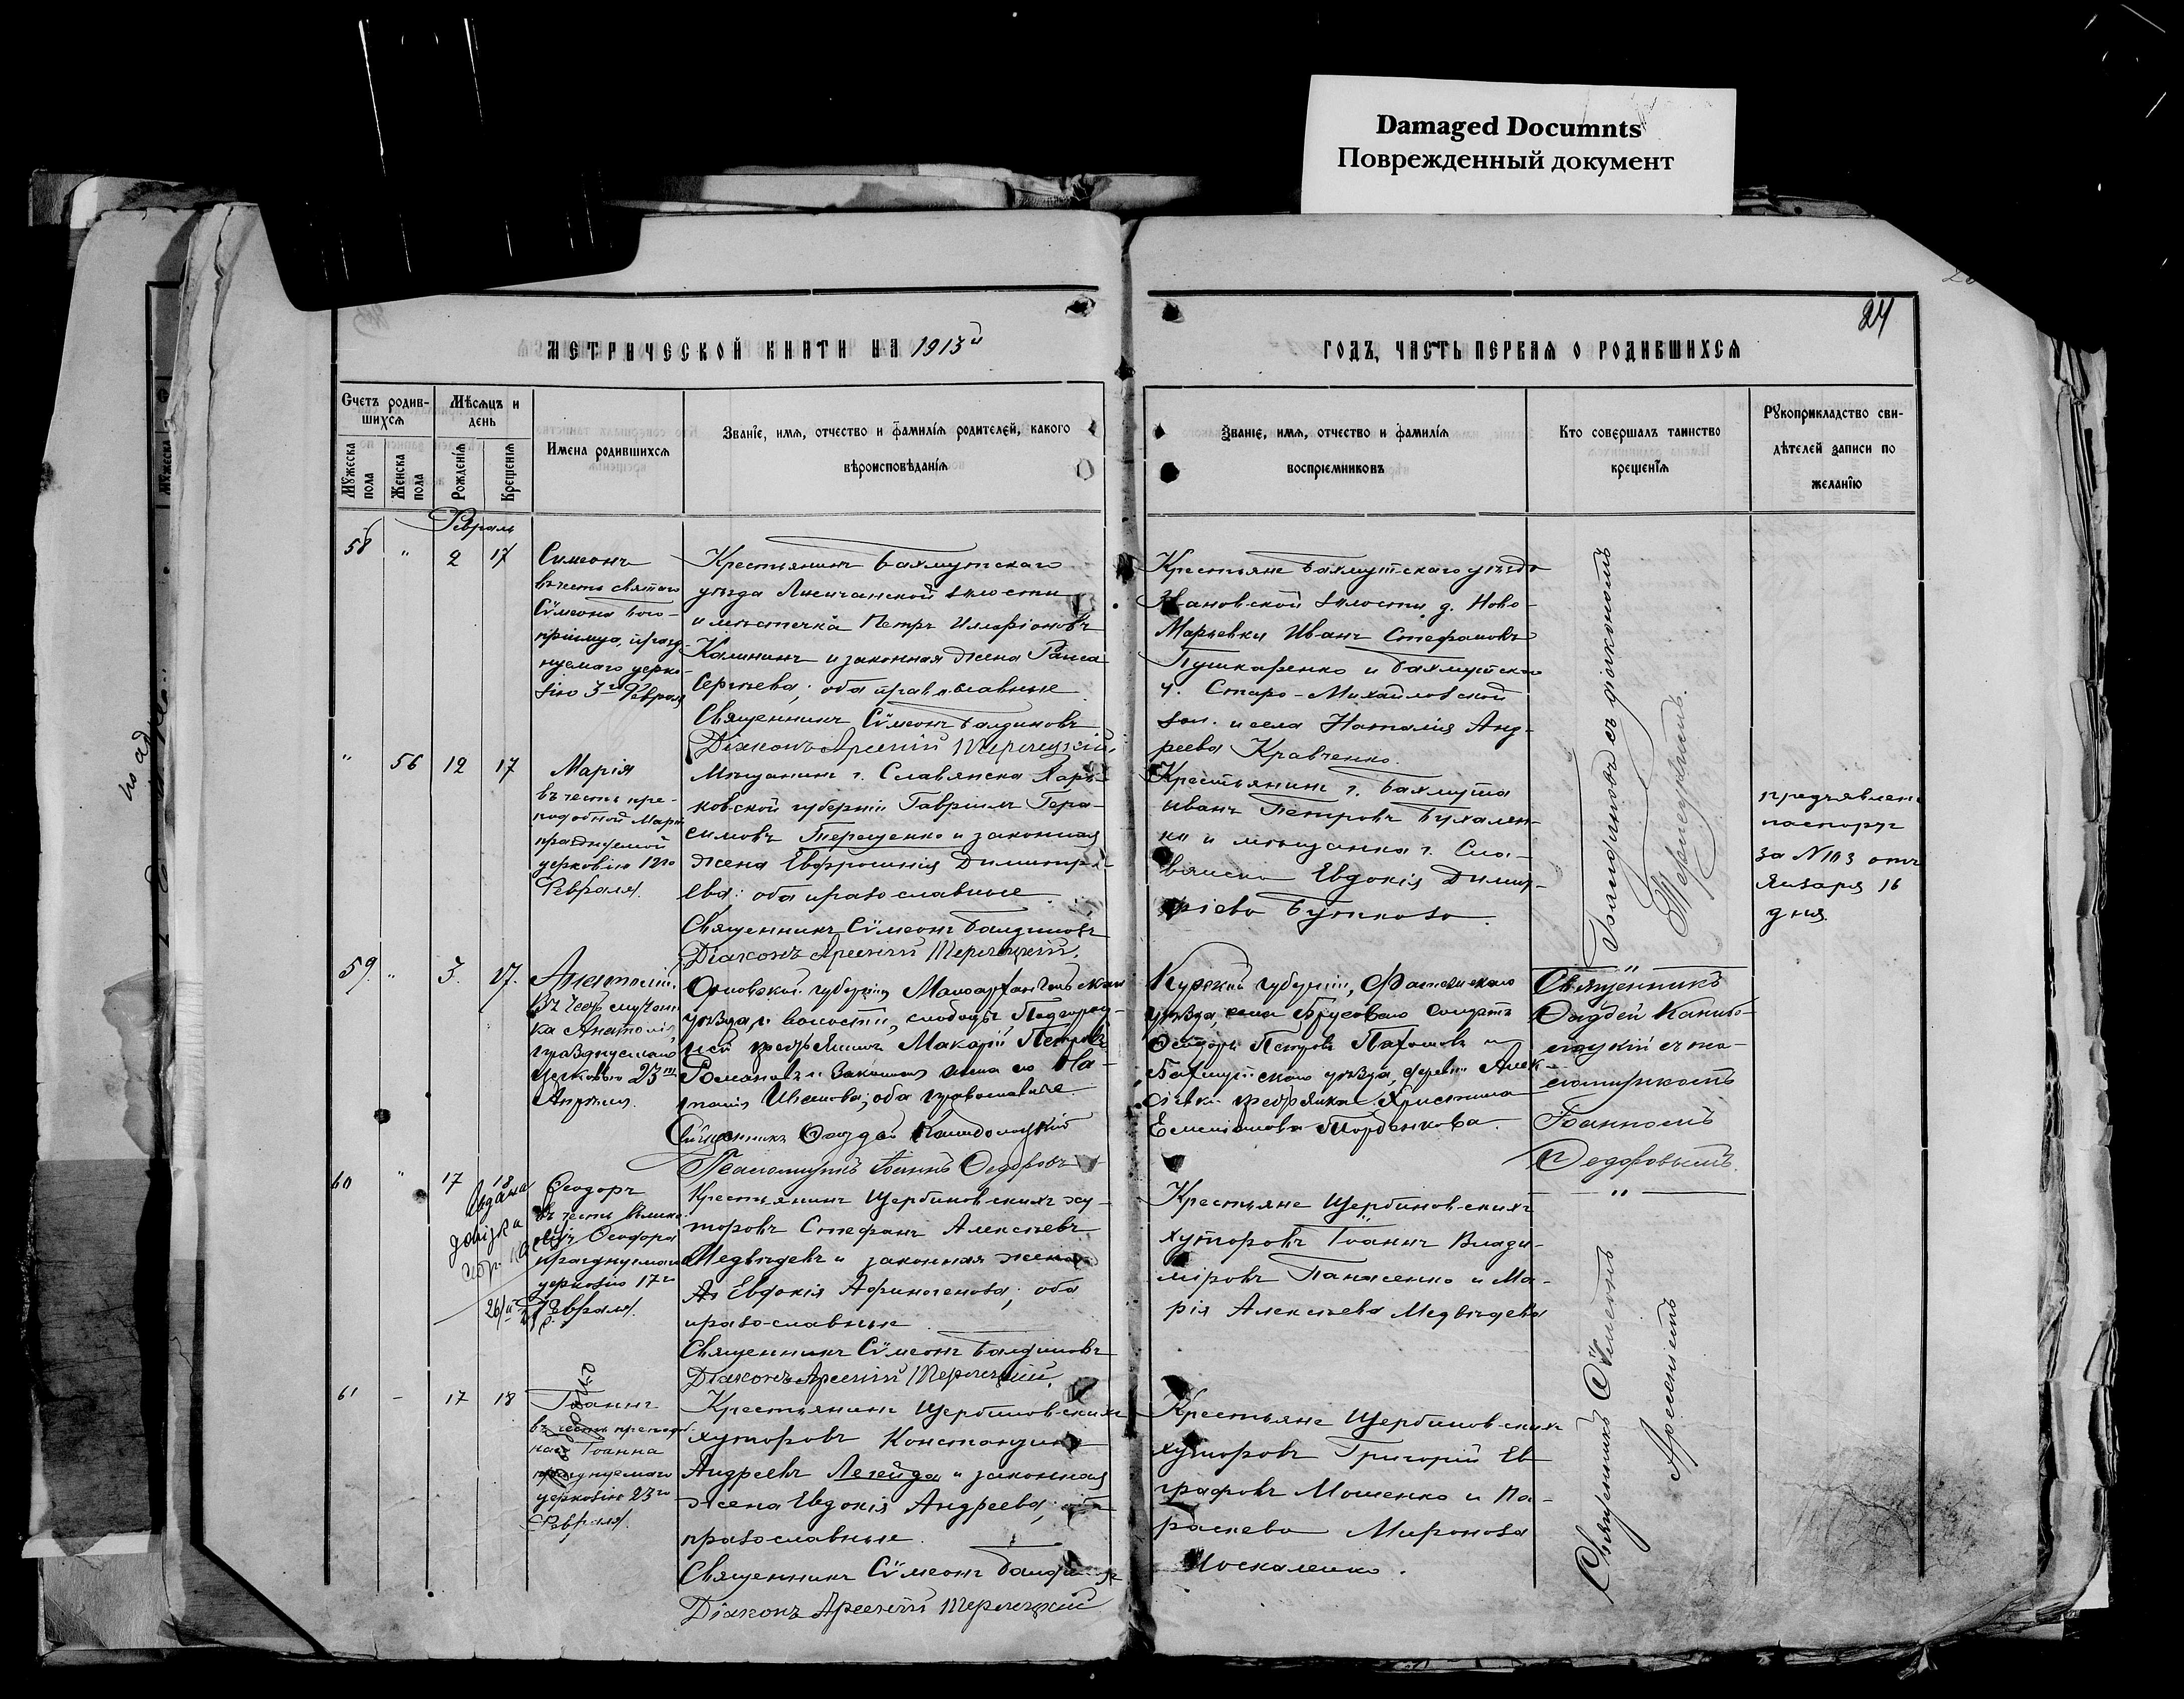 Damaged Documnts
Поврежденный документ
24
МЕТРИЧЕСКОЙ КНИГИ НА 1913й
ГОДЪ, ЧАСТЬ ПЕРВАЯ О РОДИВШИХСЯ
Счетъ родив-
шихся
Мѣсяцъ и
день
Мужеска
пола
Женска
пола
Рожденія
Крещенія
Имена родившихся
Званіе, имя, отчество и фамилія родителей, какого
вѣроисповѣданія
Званіе, имя, отчество и фамилія
воспріемниковъ
Кто совершалъ таинство
крещенія
Рукоприкладство сви-
дѣтелей записи по
желанію
Февраль
58 " 2 17
Симеонъ
въ честь святаго
Сѵмеона Бого-
церко-
вію 3го Февраля
Крестьянинъ Бахмутскаго
уѣзда Лисичанской волости
и мѣстечка Петръ Иларіоновъ
Калининъ и законная жена Раиса
Сергѣева; оба православные
Священникъ Сѵмеонъ Балдиновъ
Діаконъ Арсеній Терлецкій
Крестьяне Бахмутскаго уѣзда
Звановской волости д. Ново-
Марьевки Иванъ Стефановъ
Пушкаренко и Бахмутскаго
у. Старо-Михайловской
вол. и села Наталія Анд-
реева Кравченко.
" 56 12 17
Марія
въ честь пре-
подобной Маріи
празднуемой
церковію 12го
Февраля.
Мѣщанинъ г. Славянска Харь-
ковской губерніи Гавріилъ Гера-
симовъ Терещенко и законная
жена Евфросинія Димитрі-
ева: оба православные
Священникъ Сѵмеонъ Балдиновъ
Діаконъ Арсеній Терлецкій.
Крестьянинъ г. Бахмута
Иванъ Петровъ Бухален-
ко и мѣщанка г. Сла-
вянска Евдокія Димит-
ріева Буткова
съ діакономъ
Терлецкимъ.
предъявленъ
паспортъ
за N 103 отъ
Января 16
дня.
59. " 3. 17.
Анатолій
въ честь мучени
ка Анатолія
празднуемаго
церковью 23го
Апрѣля.
Орловской губерніи Малоархангельскаго
крестьянинъ Макарій Петровъ
Романовъ и законная жена его На-
талія Иванова; оба православные.
Священникъ Фаддей
Псаломщикъ Іоаннъ Федоровъ
Курской губерніи, Фатежскаго
уѣзда, села Брусоваго солдатъ
Феодоръ Петровъ Пахомовъ и
Бахмутскаго уѣзда, деревни Алек-
сѣевки крестьянка Христина
Емельянова Горбенкова.
Священникъ
Фаддей
съ пса-
ломщикомъ
Іоанномъ
Федоровымъ.
60 " 17 18
Феодоръ
въ честь велико
Феодора
празднуемаго
церковію 17го
Февраля.
Крестьянинъ Щербиновскихъ ху-
торовъ Стефанъ Алексѣевъ
Медвѣдевъ и законная жена
Евдокія Афиногенова; оба
православные
Священникъ Сѵмеонъ Балдиновъ
Діаконъ Арсеній Терлецкій.
Крестьяне Щербиновскихъ
хуторовъ Іоаннъ Влади-
міровъ Панасенко и Ма-
рія Алексѣева Медвѣдева
61 - 17 18
Іоаннъ
въ честь преподоб
наго Іоанна
празднуемаго
церковію 23го
Февраля.
Крестьянинъ Щербиновскихъ
хуторовъ Константинъ
Андреевъ Легейда и законная
жена Евдокія Андреева; оба
православные.
Священникъ Сѵмеонъ
Діаконъ Арсеній Терлецкій
Крестьяне Щербиновскихъ
хуторовъ Григорій Ев
графовъ Мошенко и Па-
раскева Миронова
Москаленко.
Священникъ Сѵмеонъ
Арсеніемъ